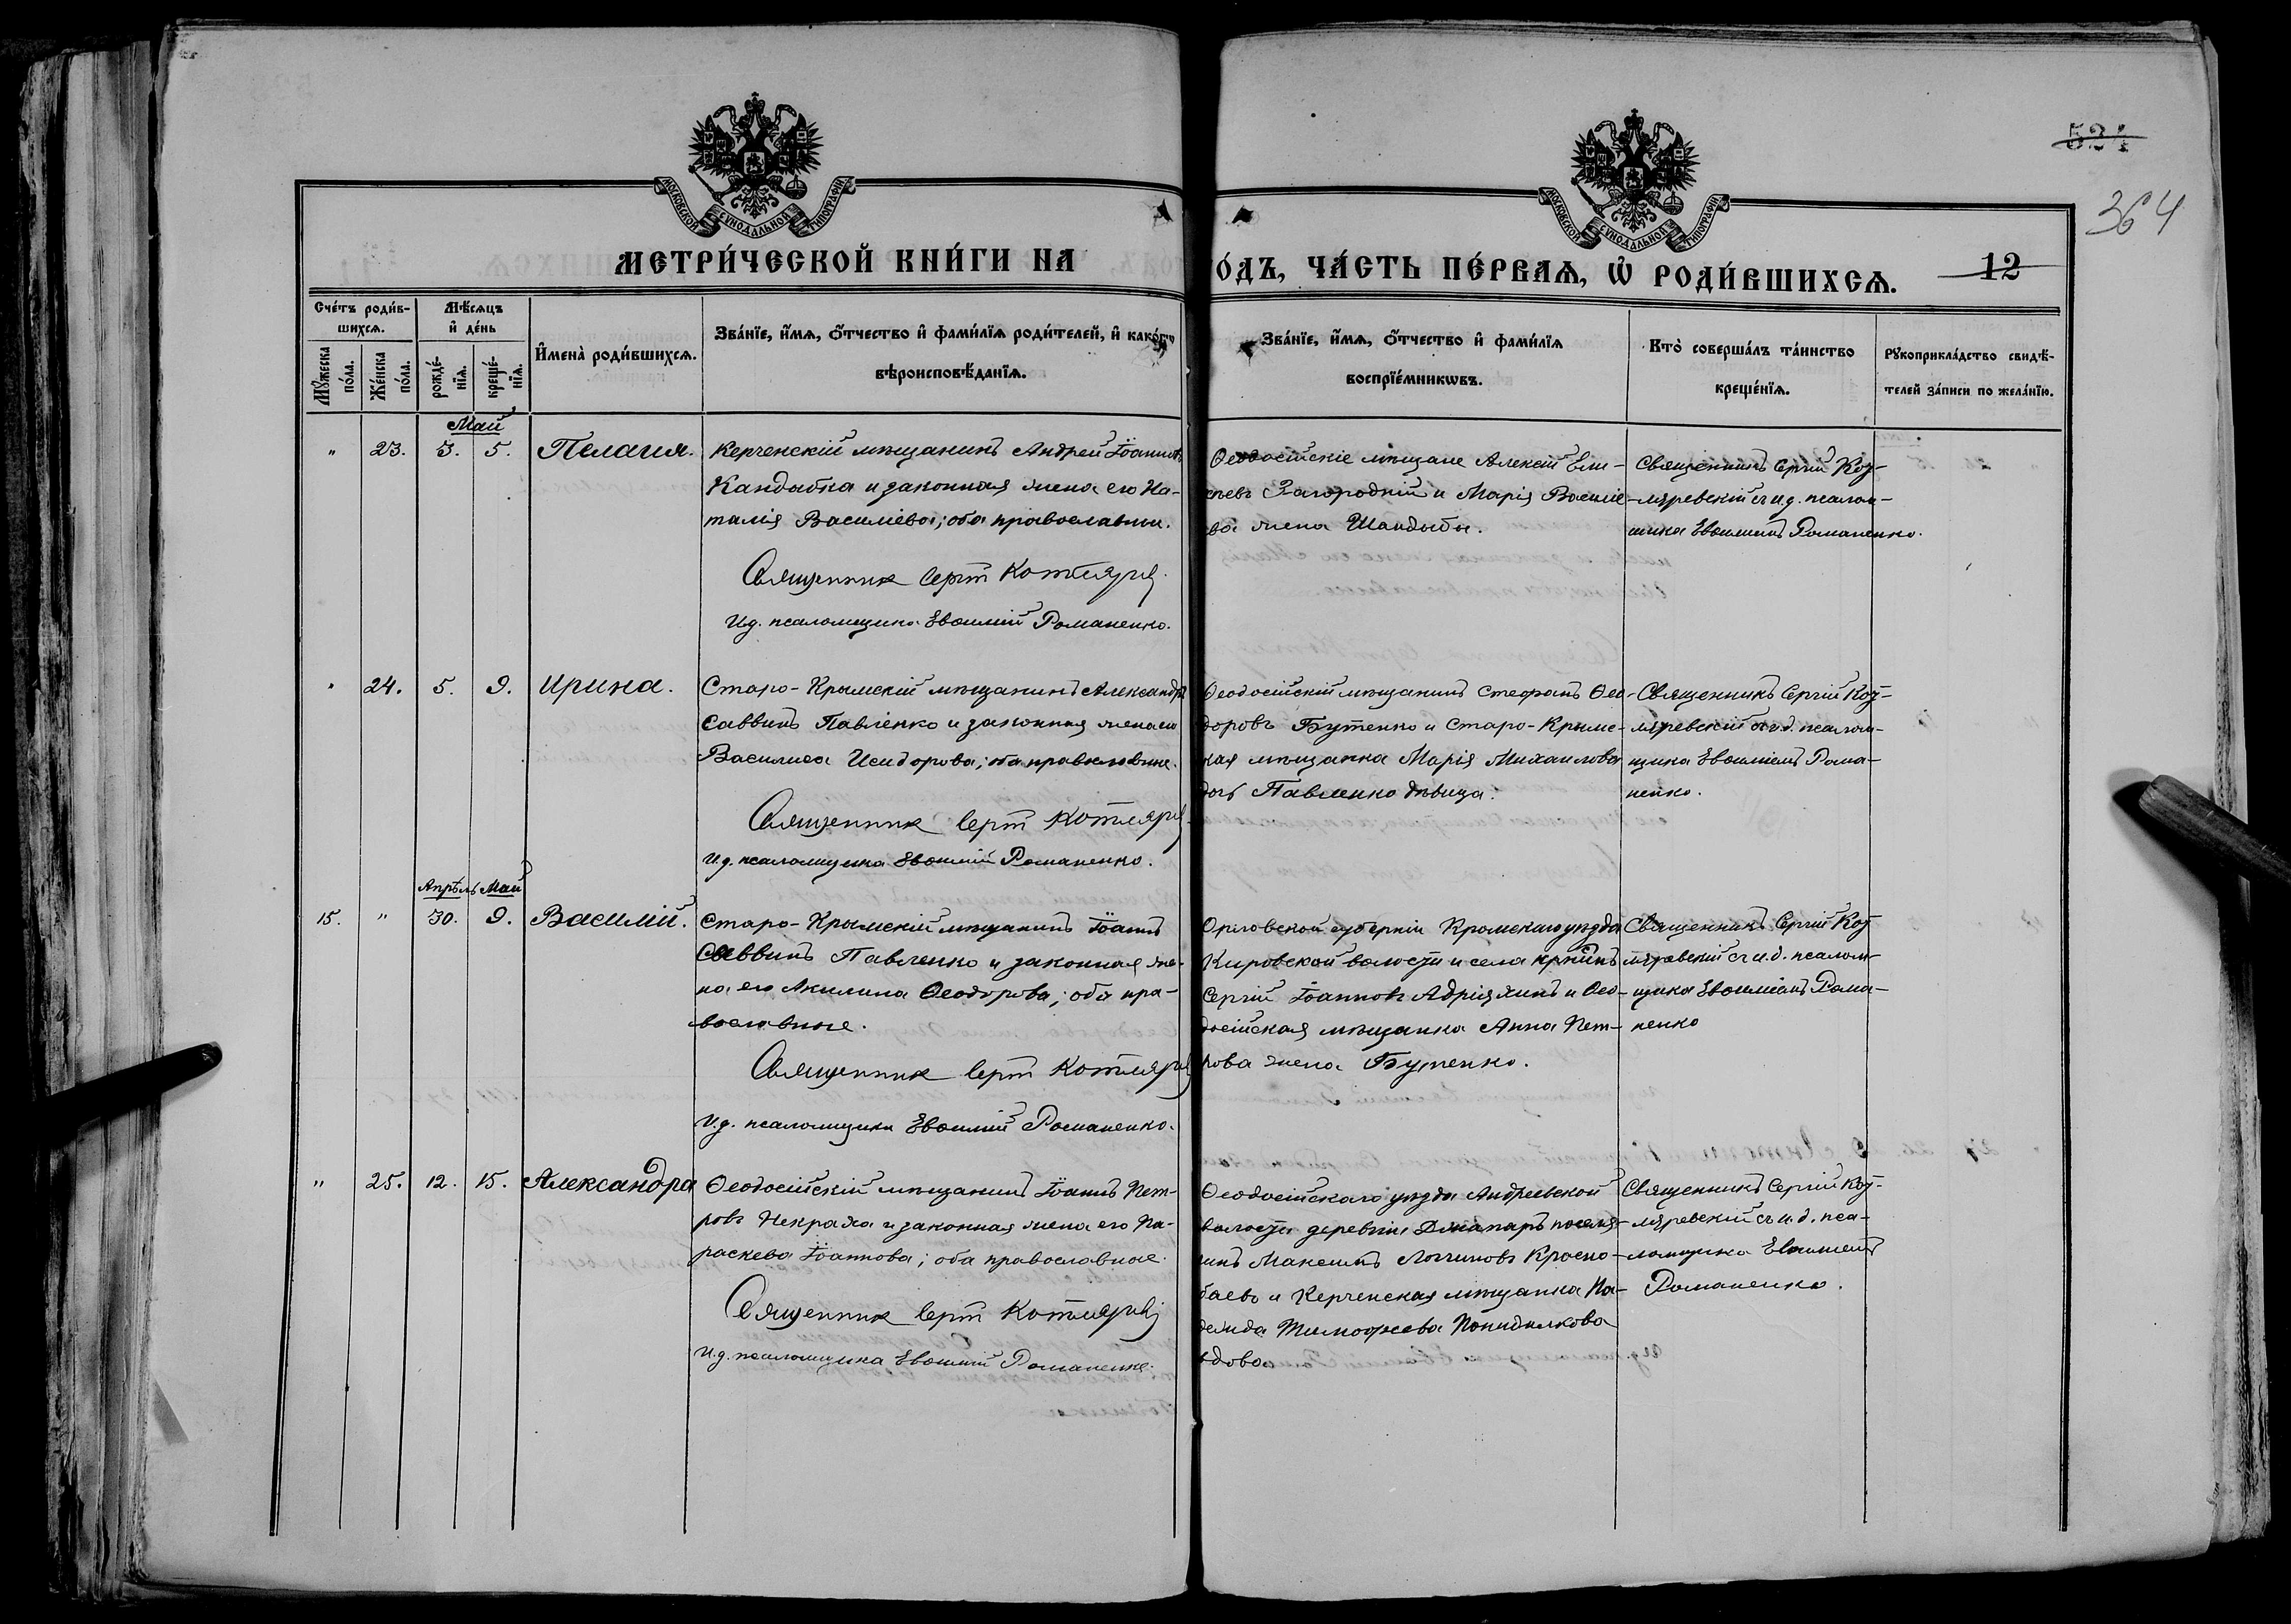 524
364
МОСКОВСКОЙ СѴНОДАЛЬНОЙ ТИПОГРАФІИ
МОСКОВСКОЙ СѴНОДАЛЬНОЙ ТИПОГРАФІИ
МЕТРИ́ЧЕСКОЙ КНИ́ГИ НА
О́ДЪ, ЧА́СТЬ ПЕ́РВАѦ, Ѡ҆ РОДИ́ВШИХСѦ.
12
Сче́тъ роди́в-
шихсѧ.
Мѣ́сѧцъ
и҆ де́нь
Мꙋ́жеска
по́ла.
Же́нска
по́ла.
рожде́-
нїѧ.
креще́-
нїѧ.
И҆мена̀ роди́вшихсѧ.
Зва́нїе, и҆́мѧ, ѻ҆́тчество и҆ фами́лїѧ роди́телей, и҆ како́гѡ
вѣроисповѣ́данїѧ.
Зва́нїе, и҆́мѧ, ѻ҆́тчество и҆ фами́лїѧ
воспрїе́мникѡвъ.
Кто̀ соверша́лъ та́инство
креще́нїѧ.
Рꙋкоприкла́дство свидѣ́-
телей за́писи по жела́нїю.
Май
" 23. 3. 5. Пелагия.
Керченскій мѣщанинъ Андрей Іоанновъ
Кандыбка и законная жена его На-
талія Василіева; оба православные.
Священник Сергій Котляревскій
И.д. псаломщика Евѳимій Романенко.
Ѳеодосійскіе мѣщане Алексій Ели-
Загородній и Марія Василіе-
ва жена Шандыбы.
Священникъ Сергій Кот-
ляревскій съ и.д. псалом-
щика Евѳиміемъ Романенко.
" 24. 5. 9. Ирина.
Старо-Крымскій мѣщанинъ Александръ
Саввинъ Павленко и законная жена его
Василиса Исидорова; оба православные.
Священник Сергій Котляревскій
И.д. псаломщика Евѳимій Романенко.
Ѳеодосійскій мѣщанинъ Стефанъ Ѳео-
доровъ Бутенко и Старо-Крымс-
кая мѣщанка Марія Михаилова
дочь Павленко дѣвица.
Священникъ Сергій Кот-
ляревскій съ и.д. псалом-
щика Евѳиміемъ Рома-
ненко.
Апрѣль Май
15. " 30. 9. Василій.
Старо-Крымскій мѣщанинъ Іоаннъ
Саввинъ Павленко и законная же-
на его Акилина Ѳеодорова; оба пра-
вославные.
Священник Сергій Котляревскій
И.д. псаломщика Евѳимій Романенко.
Орловской губерніи Кромскаго уѣзда
Кировской волости и села
Сергій Іоанновъ Адріяхинъ и Ѳео-
досійская мѣщанка Анна Пет-
рова жена Бутенко.
Священникъ Сергій Кот-
ляревскій съ и.д. псалом-
щика Евѳиміемъ Рома-
ненко
" 25. 12. 15. Александра
Ѳеодосійскій мѣщанинъ Іоаннъ Пет-
ровъ Некраха и законная жена его Па-
раскева Іоаннова; оба православные.
Священник Сергій Котляревскій
И.д. псаломщика Евѳимій Романенко.
Ѳеодосійскаго уѣзда Андреевской
волости деревни поселя-
нинъ Максимъ Логгиновъ Красно-
баевъ и Керченская мѣщанка На-
дежда Тимоѳеева
вдова
Священникъ Сергій Кот-
ляревскій съ и.д. пса-
ломщика Евѳиміемъ
Романенко.